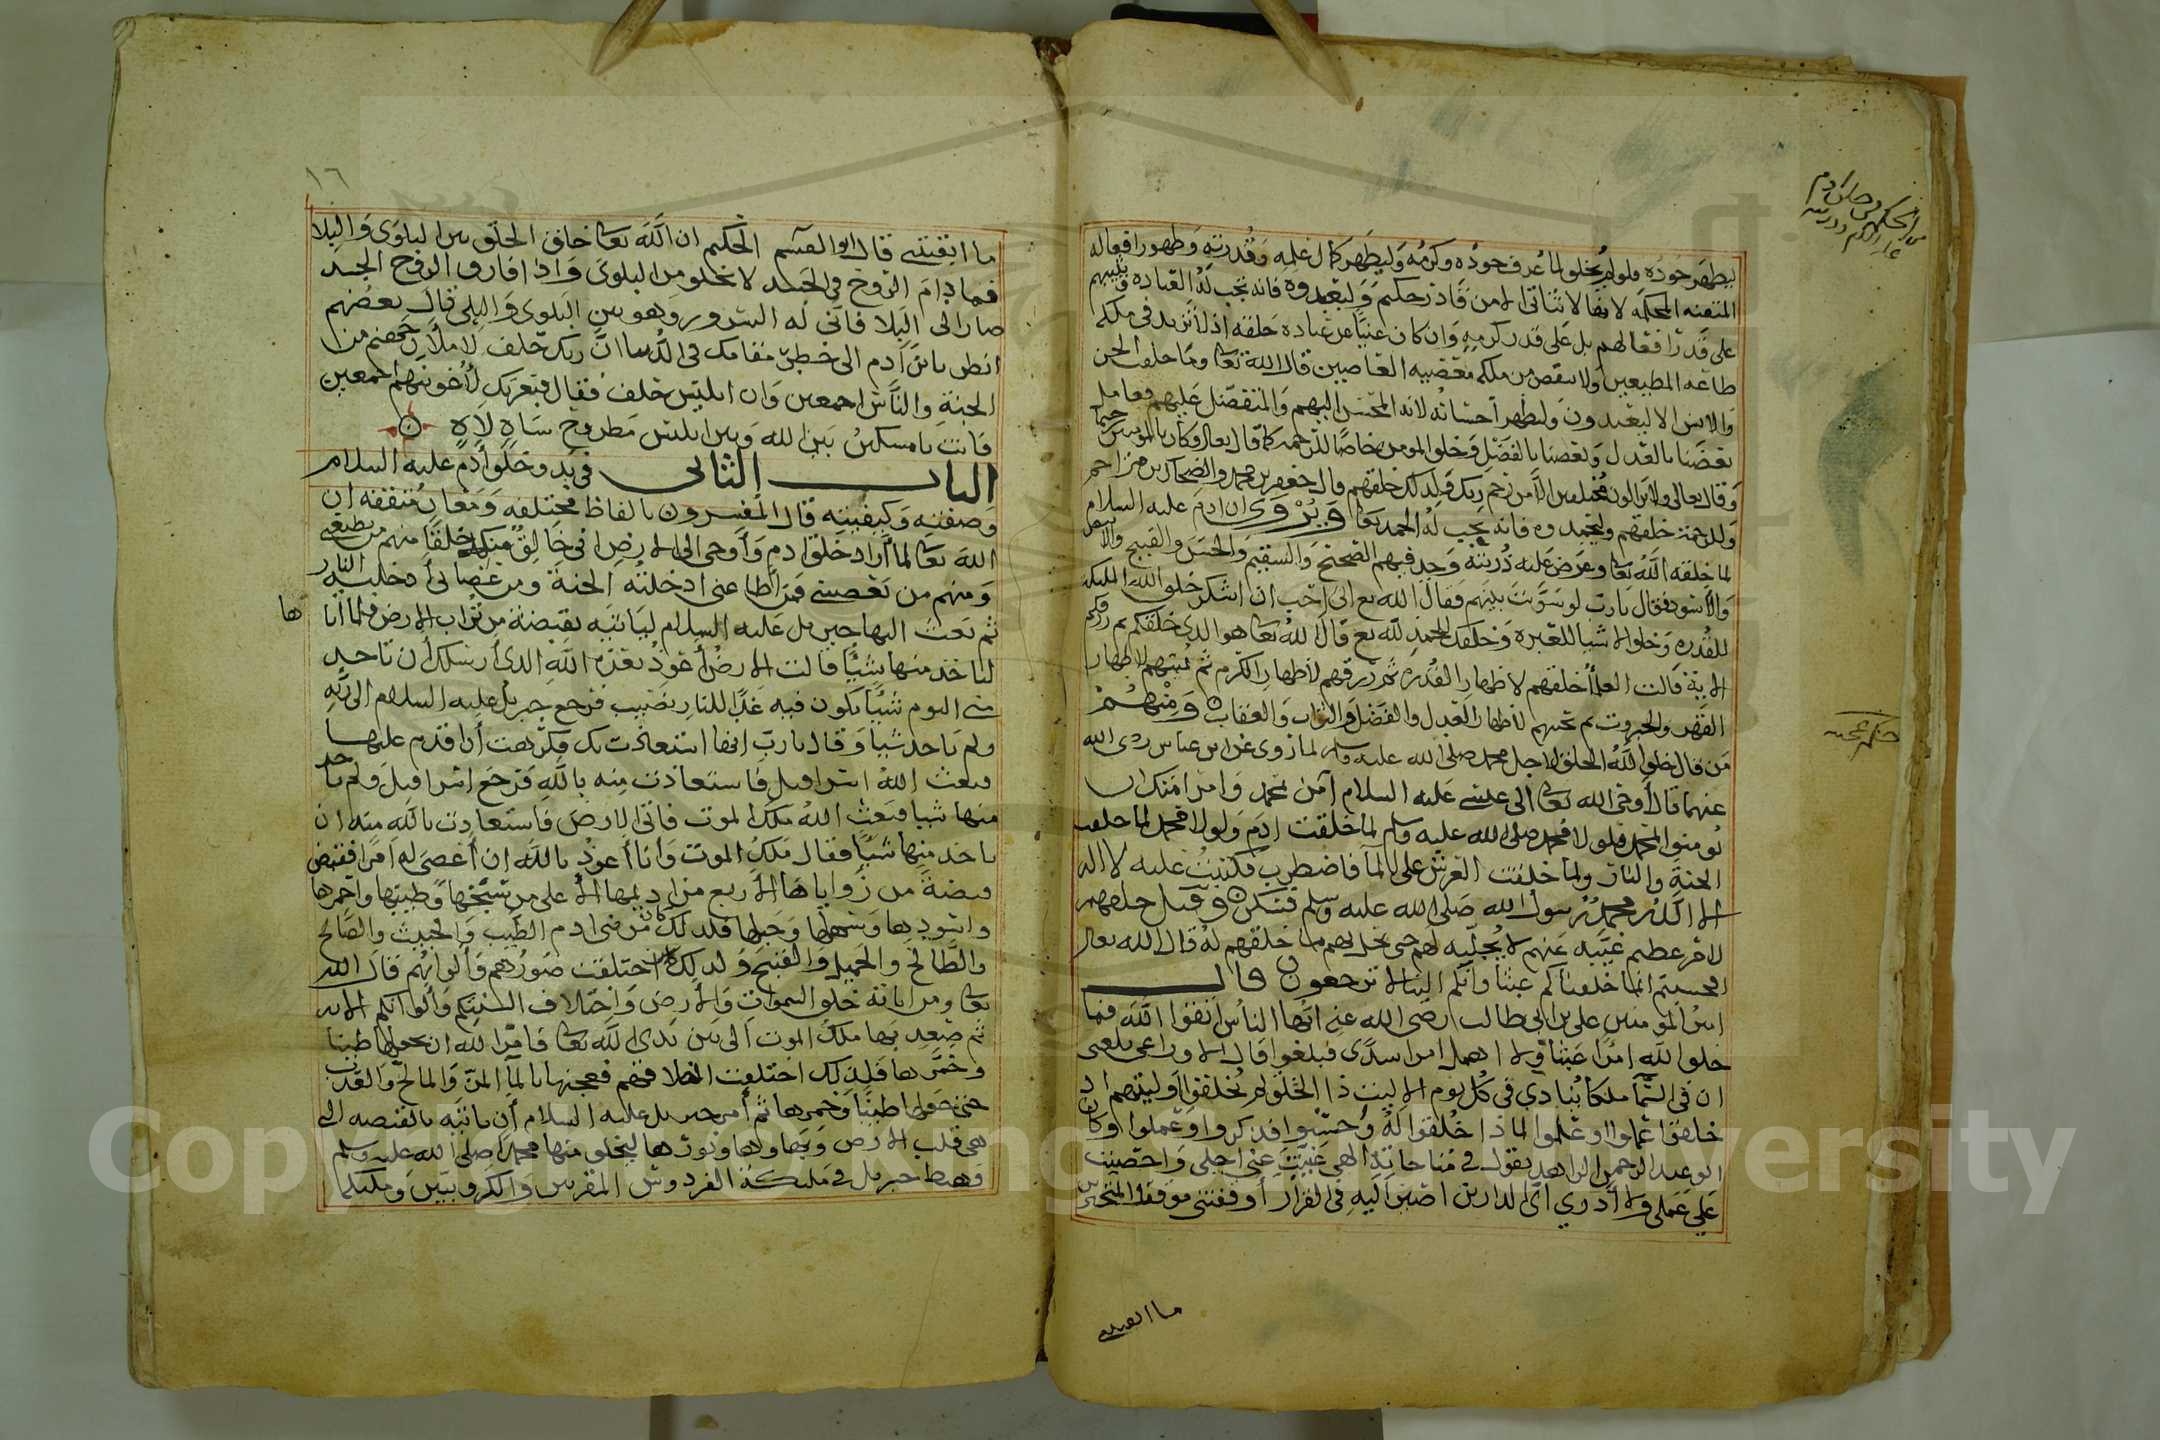 ليظهر جوده ولو لم يخلق لما عرف جوده وكرمه وليظهر كمال علمه وقدرته وظهور افعاله
المتقنه المحكمه لانها لا تتاتى الا من قادر حكيم وليعبدوه فانه يجب له العباده ويثيبهم
على قدر افعالهم بل على قدر كرمه وان كان غنيا عن عباده خلقه اذ لا تزيد في ملكه
طاعه المطيعين ولا تنقص من ملكه معصيه العاصين قال الله تعا وما خلقت الجن
والانس الا ليعبدون وليظهر احسانه لانه المحسن اليهم والمتفضل عليهم فعامل
بعضنا بالعدل وبعضنا بالفضل وخلق المومن خاصا للرحمه كما قال تعالى وكان بالمومنين رحيما
وقال تعالى ولا يزالون مختلفين الا من رحم ربك ولذلك خلقهم قال جعفر بن محمد والضحاك بن مزاحم
وللرحمة خلقهم وليحمدوه فانه يجب له الحمد تعا ويروى ان ادم عليه السلام
لما خلقه الله تعا وعرض عليه ذريته وجد فيهم الصحيح والسقيم والحسن والقبيح والابيض
والاسود فقال يارب لو سويت بينهم فقال الله تع اني احب ان اشكر خلق الله الملايكه
للقدره وخلق الاشيا للعبره وخلقك للحمد لله تع قال الله تعا هو الذي خلقكم ثم رزقكم
الاية قالت العلما خلقهم لاظهار القدره ثم رزقهم لاظهار الكرم ثم يميتهم لاظهار
القهر والجبروت ثم يحييهم لاظهار العدل والفضل والثواب والعقاب ومنهم
من قال خلق الله الخلق لاجل محمد صلى الله عليه وسلم لما روى عن ابن عباس رضى الله
عنهما قال أوحى الله تعا الى عيسى عليه السلام آمن بمحمد وامر امتك ان
يومنوا بمحمد فلولا محمد صلى الله عليه وسلم لما خلقت ادم ولولا محمد لما خلقت
الجنة والنار ولما خلقت العرش على الما فاضطرب فكتبت عليه لا اله
الا الله محمد رسول الله صلى الله عليه وسلم فسكن وقيل خلقهم
لامر عظيم غيبه عنهم لا يجليه لهم حتى يحل بهم ما خلقهم له قال الله تعالى
افحسبتم انما خلقناكم عبثا وانكم الينا لا ترجعون قال
امير المومنين علي بن ابي طالب رضى الله عنه ايها الناس اتقوا الله فما
خلق الله امرا عبثا ولا اهمل امرا سدى فيلغوا قال الاوزاعي بلغنى
ان في السما ملكا ينادي في كل يوم الا ليت ذا الخلق لم يخلقوا وليتهم اذ
خلقوا علموا لما ذا خلقوا له وجلسوا فذكروا وعملوا وكان
ابو عبد الرحمن الزاهد يقول في مناجاته الهي غيبت عني اجلى واحصيت
علي عملى ولا أدري اي الدارين اصير اليه في القرار أوقفتني موقف المتحيرين
ما ابقيتني
١٦
ما ابقيتني قال ابو القسم الحكيم ان الله تعا خلق الخلق بين البلوى والبلا
فما دام الروح في الجسد لا يخلو من البلوى واذا فارق الروح الجسد
صار الى البلا فانى له السرور وهو بين البلوى والبلى قال بعضهم
انظر يا ابن آدم الى خطير مقامك في الدنيا ان ربك حلف لأملأن جهنم من
الجنة والناس اجمعين وان ابليس حلف فقال فبعزتك لأغوينهم اجمعين
فانت يا مسكين بين الله وبين ابليس مطروح ساه لاه
الباب الثاني في بدو خلق أدم عليه السلام
وصفته وكيفيته قال المفسرون بالفاظ مختلفه ومعان متفقه ان
الله تعا لما أراد خلق ادم وأوحى الى الارض اني خالق منك خلقا منهم من يطيعني
ومنهم من يعصيني فمن اطاعني ادخلته الجنة ومن عصاني أدخلته النار
ثم بعث اليها جبريل عليه السلام ليأتيه بقبضة من تراب الارض فلما اتا ها
لياخذ منها شيئا قالت الارض أعوذ بعزة الله الذي أرسلك أن تاخذ
مني اليوم شيئا يكون فيه غدا للنار نصيب فرجع جبريل عليه السلام الى ربه
ولم ياخذ شيا وقال يارب انها استعاذت بك فكرهت أن اقدم عليها
فبعث الله اسرافيل فاستعاذت منه بالله فرجع اسرافيل ولم ياخذ
منها شيا فبعث الله ملك الموت فاتى الارض فاستعاذت بالله منه ان
ياخذ منها شيئا فقال ملك الموت وانا أعوذ بالله ان أعصى له امرا فقبض
قبضة من زواياها الأربع من اديمها الاعلى من سبخها وطيبها واحمرها
واسودها وسهلها وجبلها فلذلك كان من فى ادم الطيب والخبيث والصالح
والطالح والجميل والقبيح ولذلك اختلفت صورهم وألوانهم قال الله
تعا ومن اياته خلق السموات والارض واختلاف السنتكم وألوانكم الايه
ثم صعد بها ملك الموت الى بين يدى الله تعا فامر الله ان يجعلها طينا
وخمرها فلذلك اختلفت اخلاقهم فعجنها بالما المر والمالح والعذب
حتى جعلها طينا وخمرها ثم أمر جبريل عليه السلام أن ياتيه بالقبضه التي
هي قلب الارض وبهاوها ونورها ليخلق منها محمدا صلى الله عليه وسلم
فهبط جبريل في مليكة الفردوس المقربين والكروبيين ومليكة